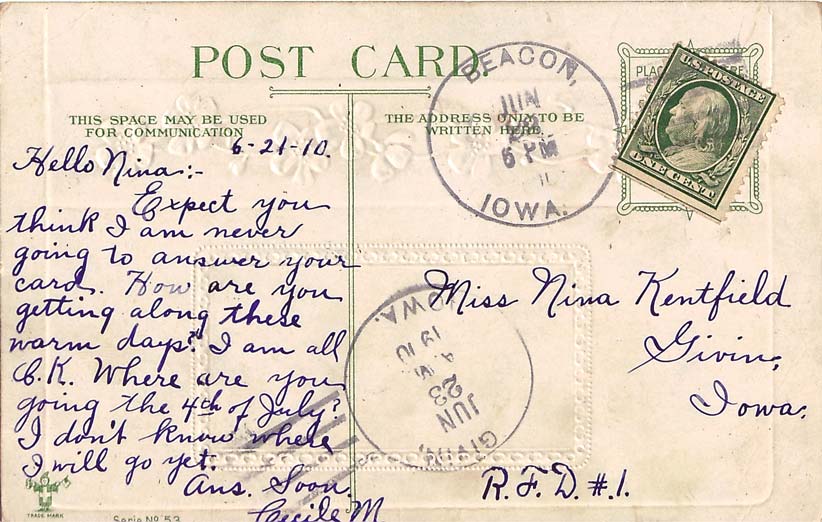 POST CARD.
THIS SPACE MAY BE USED
FOR COMMUNICATION
THE ADDRESS ONLY TO BE
WRITTEN HERE.
BEACON,
JUN
6 PM
IOWA.
U.S. POSTAGE
ONE CENT
PLAC
6-21-10.
Hello Nina:-
Expect you
think I am never
going to answer your
card. How are you
getting along these
warm days? I am all
O.K. Where are you
going the 4th of July?
I don't know where
I will go yet.
Ans. Soon.
Cecile M
Miss Nina Kentfield
Givin,
Iowa.
R.F.D. #1.
IOWA.
1910
JUN
23
GIVIN,
TRADE MARK
Serie No 53